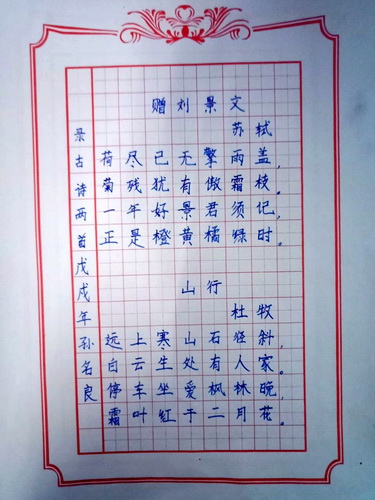 赠刘景文
苏轼
荷尽已无擎雨盖,
菊残犹有傲霜枝。
一年好景君须记,
正是橙黄橘绿时。
山行
杜牧
远上寒山石径斜,
白云生处有人家。
停车坐爱枫林晚,
霜叶红于二月花。
录古诗两首戊戌年孙名良